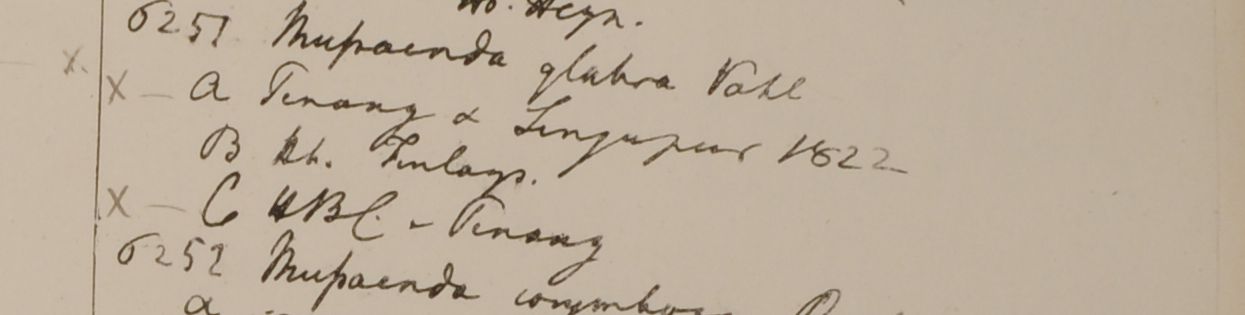 Hb. Heyn.
6251 Mussaenda glabra Vahl
X. X — a Penang & Singapur 1822
B hb. Finlays.
X — C HBC. - Penang
6252 Mussaenda corymbosa
a